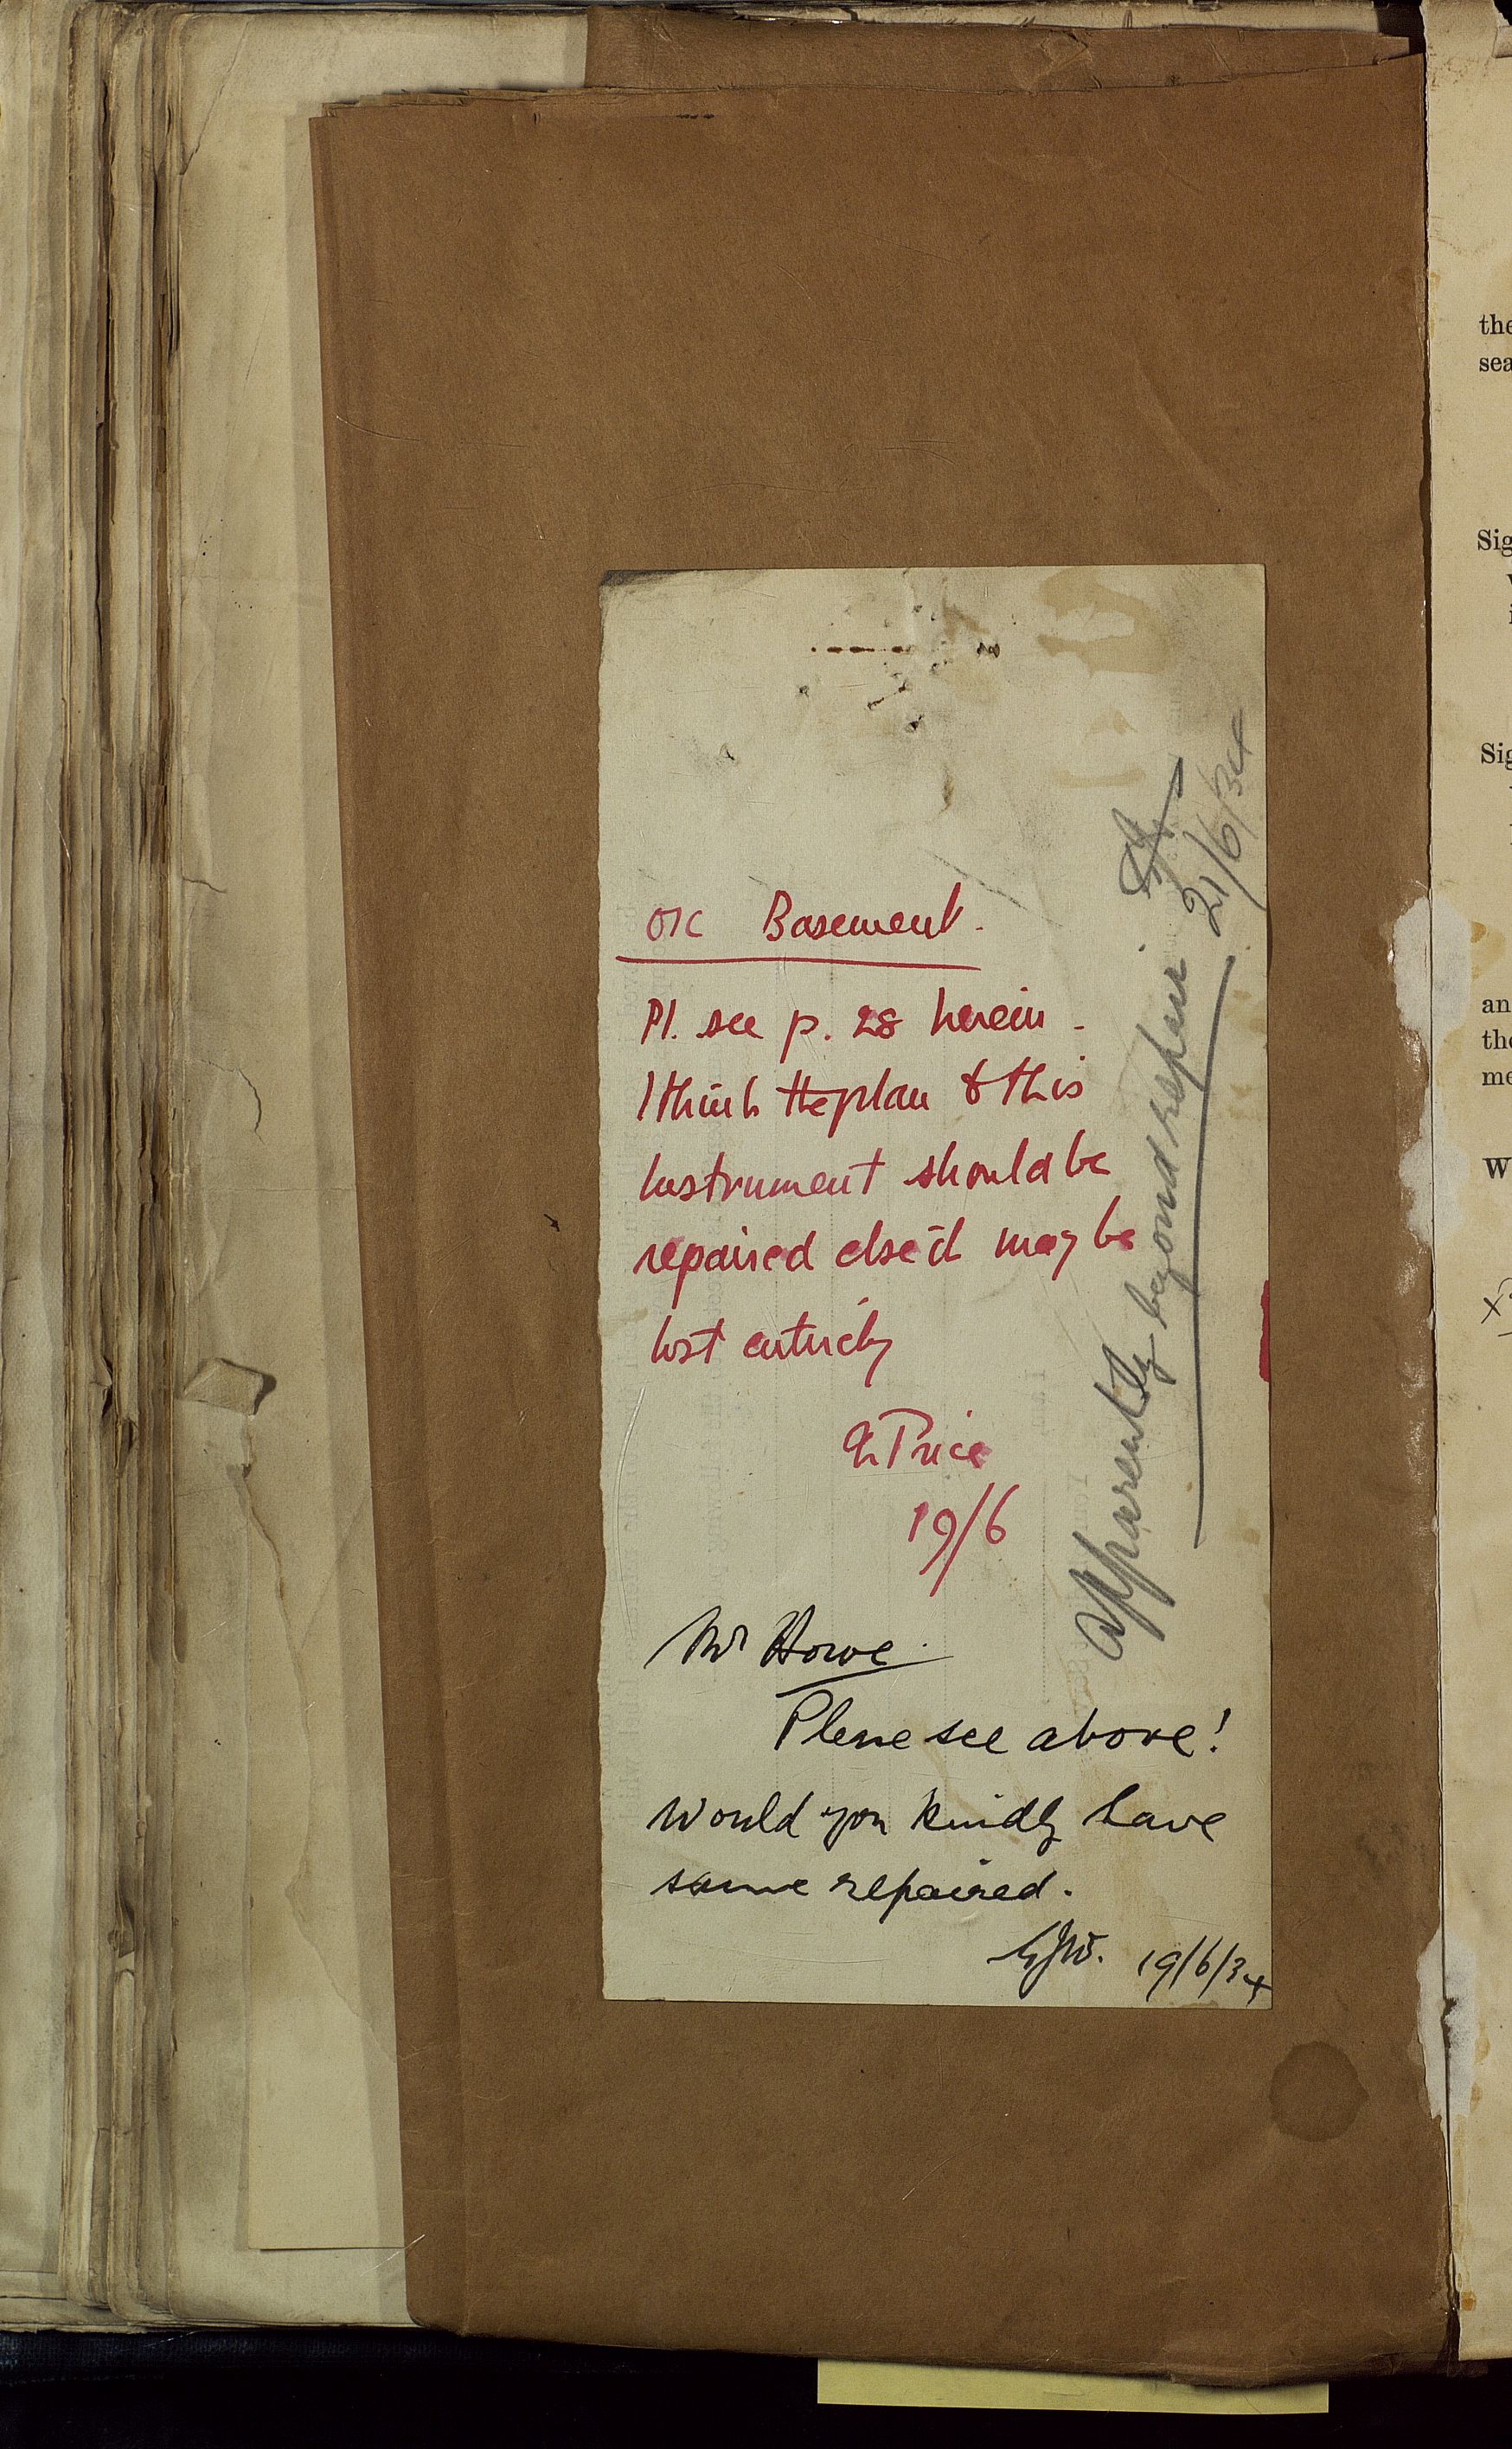 O/C Basement.
Pl. see p. 28 herein -
I think the plan & this
Instrument should be
repaired else it may be
lost entirely
Price
19/6
Mr Howe.
Please see above!
Would you kindly have
same repaired.
19/6/34
Apparently beyond repair
21/6/34
the
sea
Sig
Sig
an
the
me
W